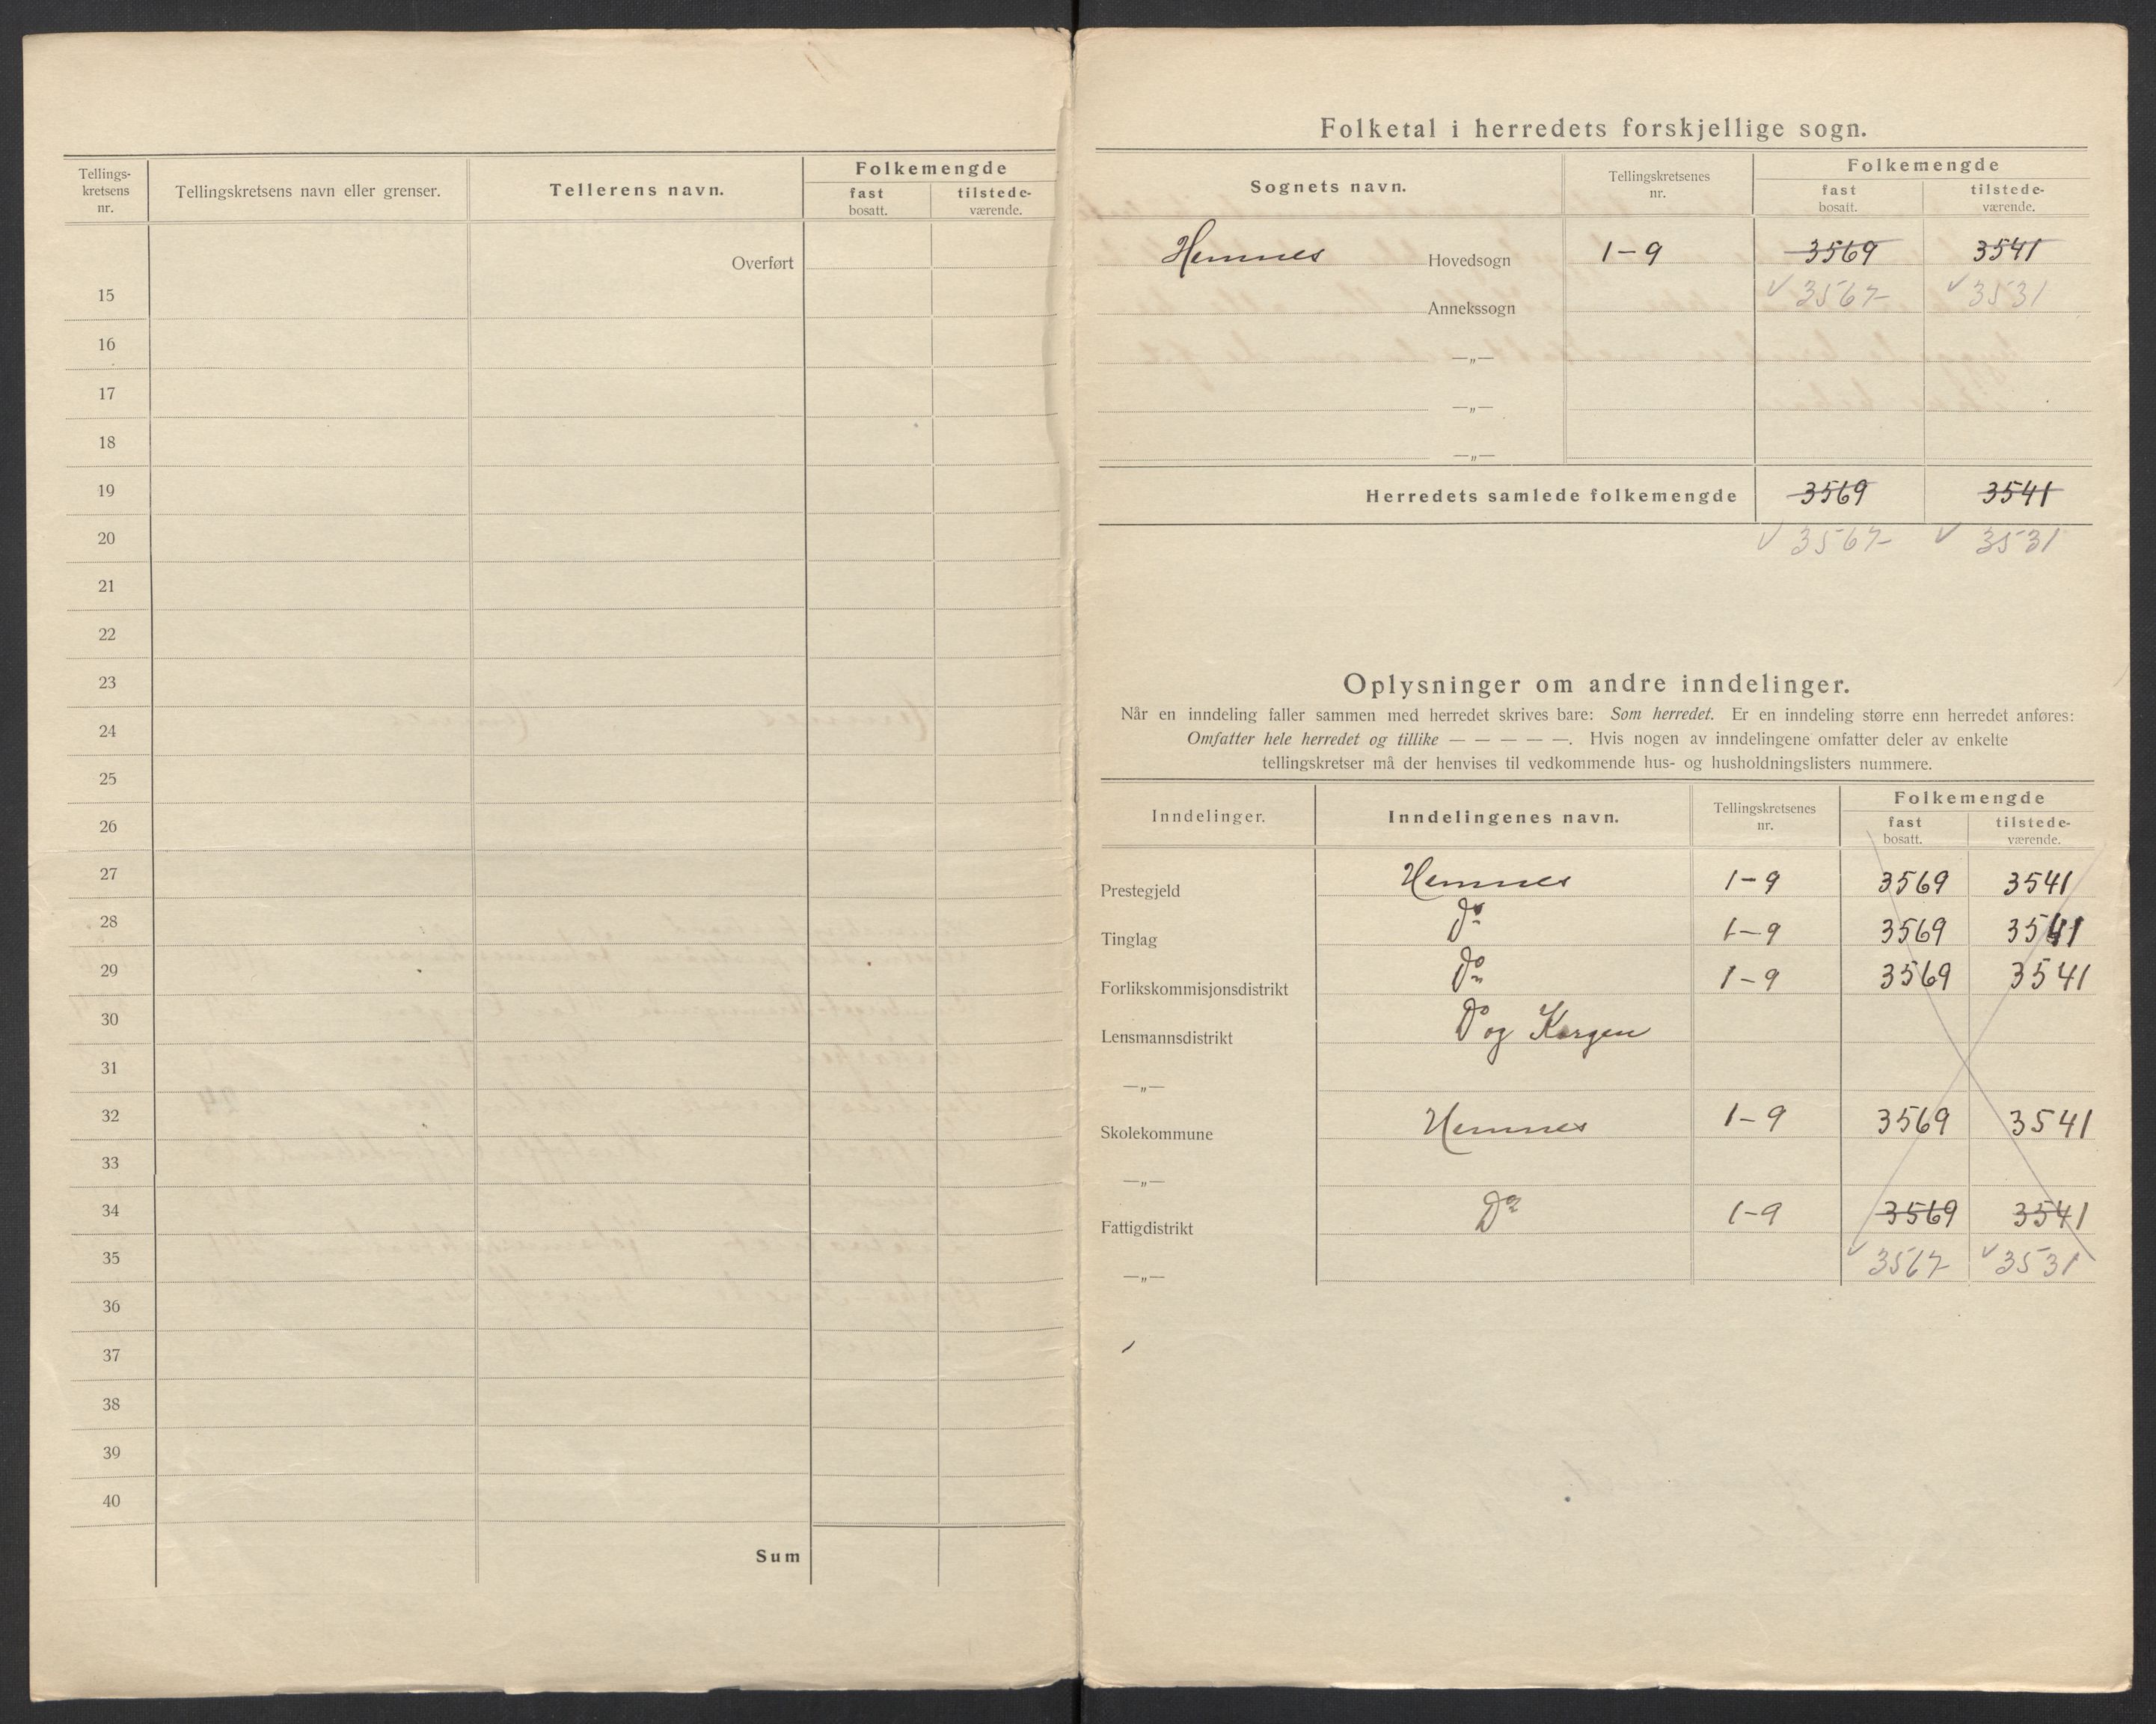 Tellings-
kretsens
nr.
Tellingskretsens navn eller grenser.
Tellerens navn.
Folkemengde
fast
bosatt.
tilstede-
værende.
Overført
15
16
17
18
19
20
21
22
23
24
25
26
27
28
29
30
31
32
33
34
35
36
37
38
39
40
Sum
Folketal i herredets forskjellige sogn.
Sognets navn.
Tellingskretsenes
nr.
Folkemengde
fast
bosatt.
tilstede-
værende.
Hemnes Hovedsogn 1-9 3569 3541
Annekssogn √ 3567 √ 3531
—„—
—„—
—„—
Herredets samlede folkemengde 3569 3541
√ 3567 √ 3531
Oplysninger om andre inndelinger.
Når en inndeling faller sammen med herredet skrives bare: Som herredet. Er en inndeling større enn herredet anføres:
Omfatter hele herredet og tillike — — — — —. Hvis nogen av inndelingene omfatter deler av enkelte
tellingskretser må der henvises til vedkommende hus- og husholdningslisters nummere.
Inndelinger.
Inndelingenes navn.
Tellingskretsenes
nr.
Folkemengde
fast
bosatt.
tilstede-
værende.
Prestegjeld Hemnes 1-9 3569 3541
Tinglag Do 1-9 3569 3541
Forlikskommisjonsdistrikt Do 1-9 3569 3541
Lensmannsdistrikt Do og Korgen
—„—
Skolekommune Hemnes 1-9 3569 3541
—„—
Fattigdistrikt Do 1-9 3569 3541
—„— √ 3567 √ 3531